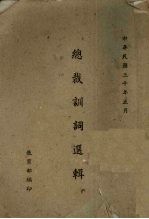 中華民國三十年五月
總裁訓詞選輯
教育部編印